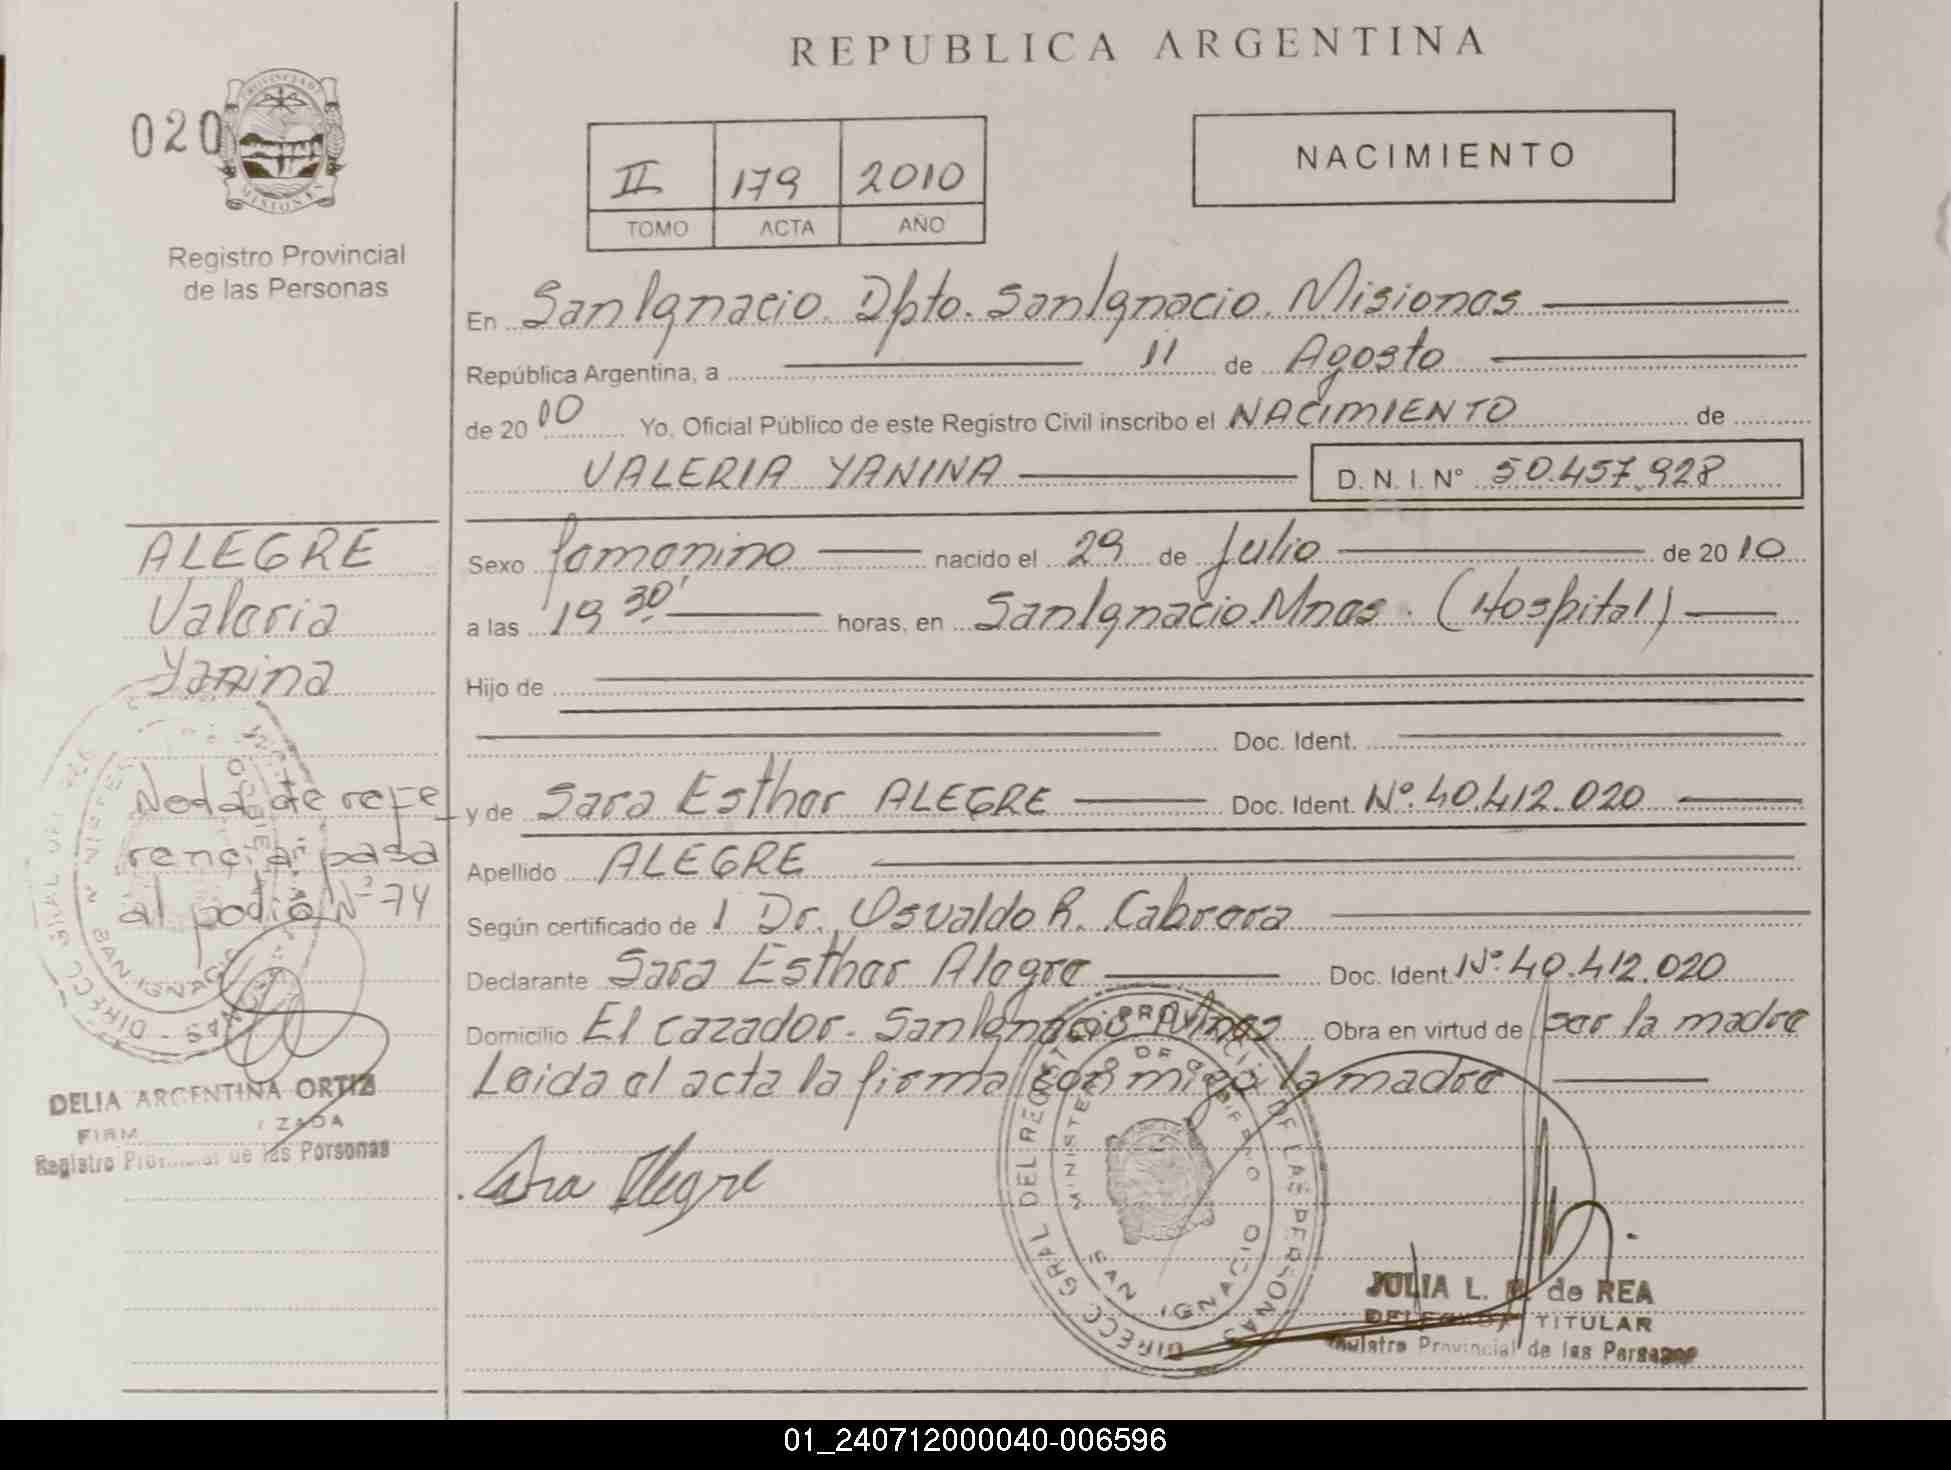 REPUBLICA ARGENTINA
020
PROVINCIA DE
MISIONES
Registro Provincial
de las Personas
II 179 2010
TOMO ACTA AÑO
NACIMIENTO
En San Ignacio. Dpto. San Ignacio. Misiones
República Argentina, a 11 de Agosto
de 2010 Yo, Oficial Público de este Registro Civil inscribo el NACIMIENTO de
VALERIA YANINA D. N. I. N° 50.457.928
Sexo femenino nacido el 29 de Julio de 2010
a las 19 30' horas, en San Ignacio Mnes. (Hospital)
Hijo de
Doc. Ident.
y de Sara Esther ALEGRE Doc. Ident. N°. 40.412.020
Apellido ALEGRE
Según certificado de l Dr. Osvaldo R. Cabrera
Declarante Sara Esther Alegre Doc. Ident. N°. 40.412.020
Domicilio El cazador. San Ignacio Mnes Obra en virtud de ser la madre
Leida el acta la firma conmigo la madre
Sara Alegre
ALEGRE
Valeria
Yanina
Nota de refe
rencia pasa
al N° 74
DELIA ARGENTINA ORTIZ
Registro Provincial de las Personas
DIRECC GRAL DEL REGIST PROVINCIAL DE LAS PERSONAS
MINISTERIO DE GOBIERNO
SAN IGNACIO
JULIA L. de REA
DELEGADA TITULAR
Registro Provincial de las Personas
01_240712000040-006596